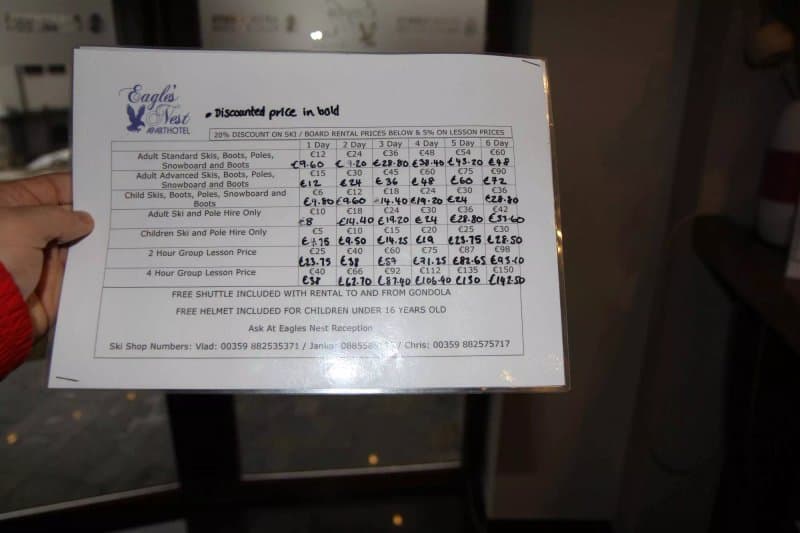 Eagle's
Nest
APARTHOTEL
• Discounted price in bold
20% DISCOUNT ON SKI / BOARD RENTAL PRICES BELOW & 5% ON LESSON PRICES
1 Day 2 Day 3 Day 4 Day 5 Day 6 Day
Adult Standard Skis, Boots, Poles, Snowboard and Boots €12 €24 €36 €48 €54 €60
€9.60 €28.80 €38.40 €43.20 €48
Adult Advanced Skis, Boots, Poles, Snowboard and Boots €15 €30 €45 €60 €75 €90
€12 €24 €36 €48 €60 €72
Child Skis, Boots, Poles, Snowboard and Boots €6 €12 €18 €24 €30 €36
€4.80 €9.60 €14.40 €19.20 €24 €28.80
Adult Ski and Pole Hire Only €10 €18 €24 €30 €36 €42
€8 €14.40 €19.20 €24 €28.80 €33.60
Children Ski and Pole Hire Only €5 €10 €15 €20 €25 €30
€4.75 €9.50 €14.25 €19 €23.75 €28.50
2 Hour Group Lesson Price €25 €40 €60 €75 €87 €98
€23.75 €38 €57 €71.25 €82.65 €93.10
4 Hour Group Lesson Price €40 €66 €92 €112 €135 €150
€38 €62.70 €87.40 €106.40 €130 €142.50
FREE SHUTTLE INCLUDED WITH RENTAL TO AND FROM GONDOLA
FREE HELMET INCLUDED FOR CHILDREN UNDER 16 YEARS OLD
Ask At Eagles Nest Reception
Ski Shop Numbers: Vlad: 00359 882535371 / Janko: / Chris: 00359 882575717